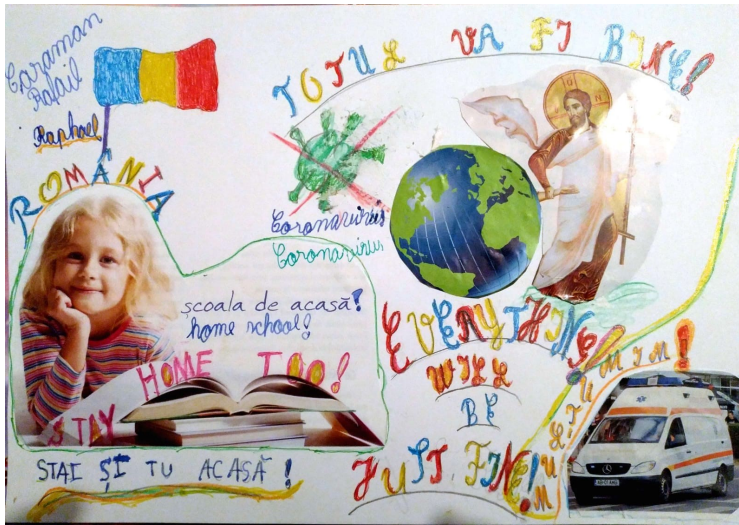 Caraman
Rafail
Raphael
ROMÂNIA
TOTUL VA FI BINE!
Coronavirus
Coronavirus
școala de acasă!
home school!
STAY HOME TOO!
STAI ȘI TU ACASĂ!
EVERYTHING!
WILL
BE
JUST FINE!
MULȚUMIM!